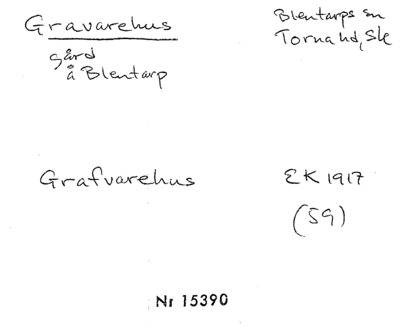 Gravarehus
gård
å Blentarp
Blentarps sn
Torna hd, Sk
Grafvarehus
EK 1917
(59)
Nr 15390